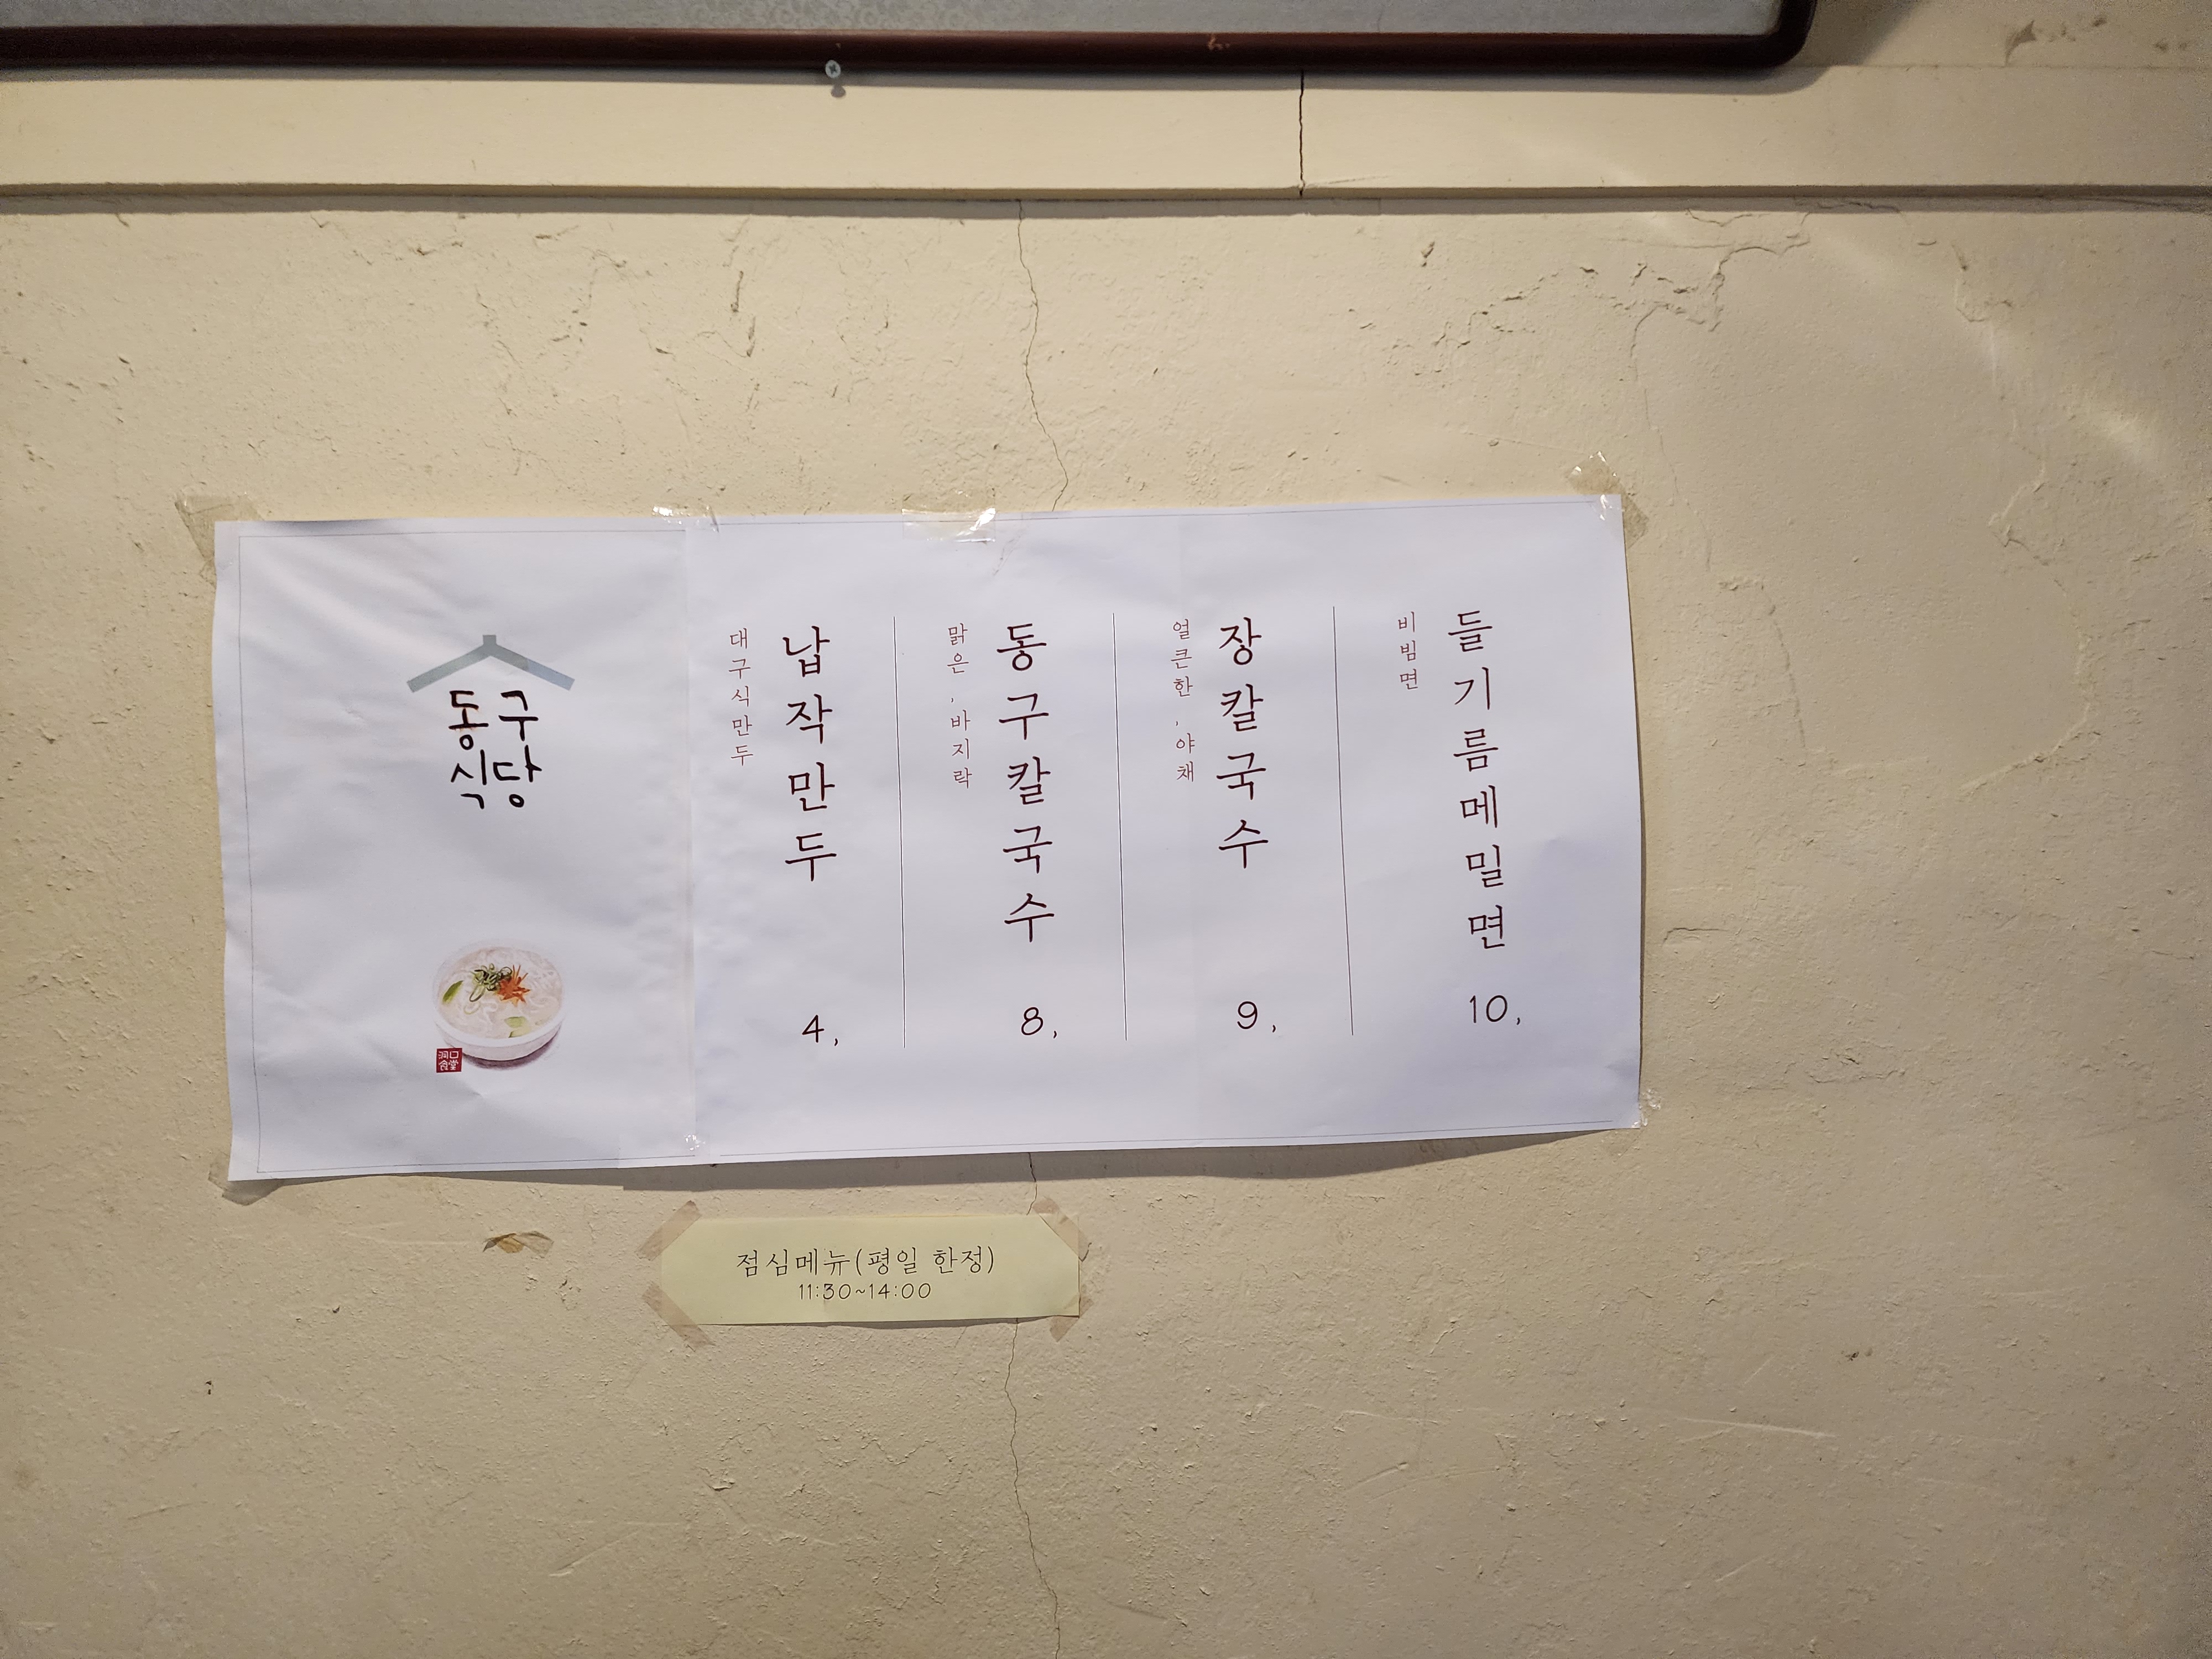 동구
식당
洞口
食堂
납작만두
대구식만두
4,
동구칼국수
맑은,바지락
8,
장칼국수
얼큰한,야채
9,
들기름메밀면
비빔면
10,
점심메뉴(평일 한정)
11:30~14:00